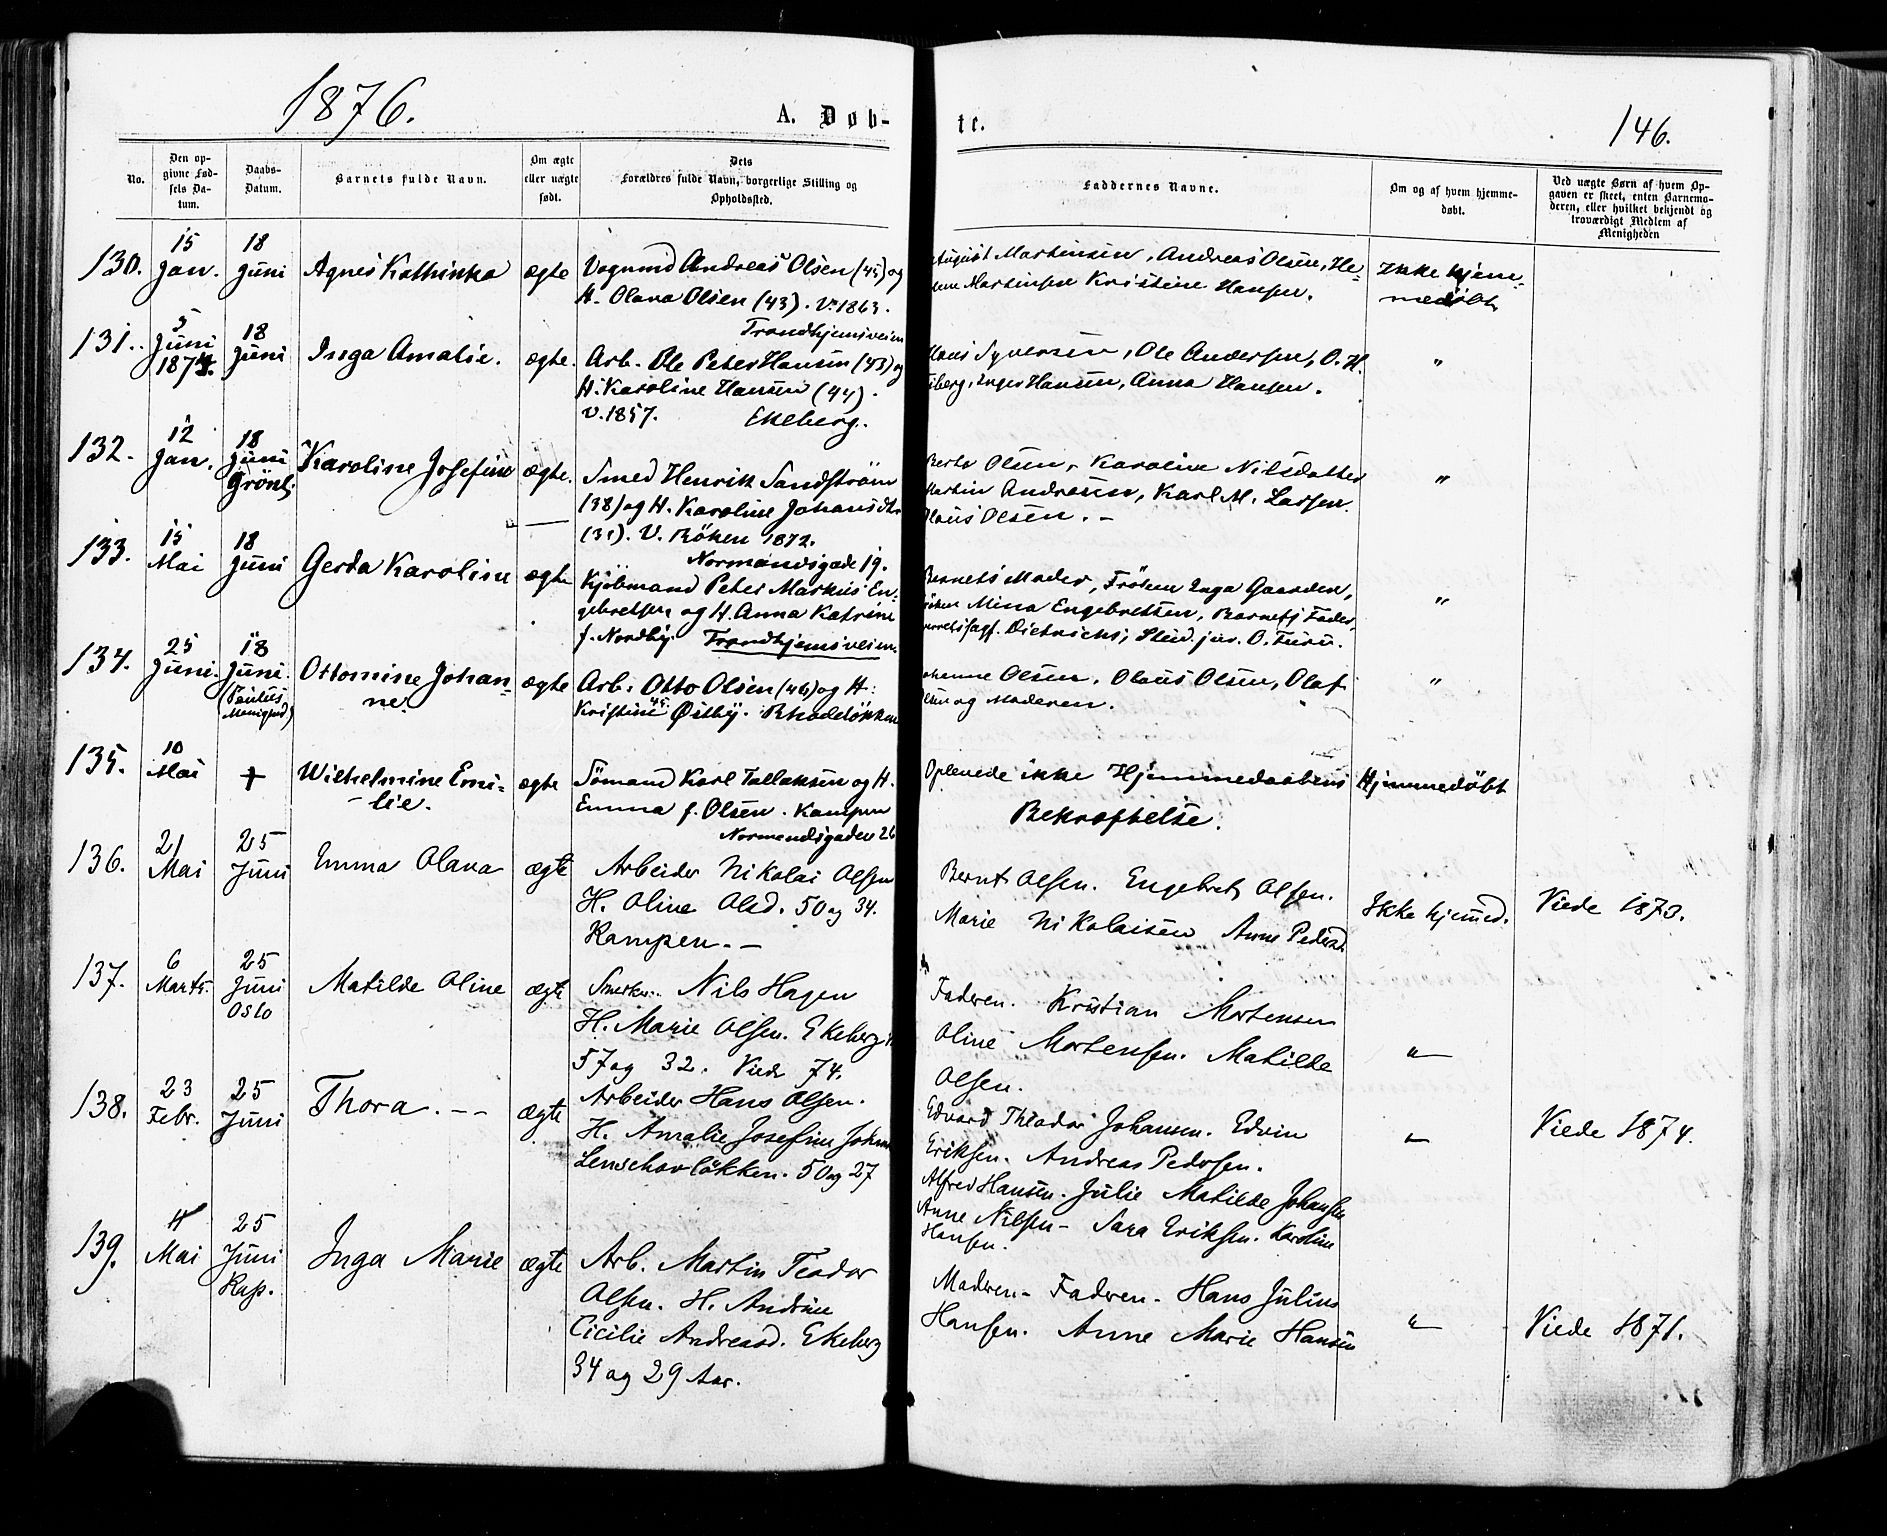 1876.
A. Døb-
te.
146.
No.
Den op-
givne Fød-
sels Da-
tum.
Daabs-
Datum.
Barnets fulde Navn.
Om ægte
eller uægte
født.
Dets
Forældres fulde Navn, borgerlige Stilling og
Opholdssted.
Faddernes Navne.
Om og af hvem hjemme-
døbt.
Ved uægte Børn af hvem Op-
gaven er skeet, enten Barnemo-
deren, eller hvilket bekjendt og
troværdigt Medlem af
Menigheden
130. 15 Jan. 18 Juni Agnes Kathinka ægte
Andreas Olsen (45) og
H. Olava Olsen (43). V. 1863.
Trondhjemsveien
August Martinsen, Andreas Olsen, He-
Martinsen Kristine Hansen.
Ikke hjem-
medøbt
131. 5 Juni 1874. 18 Juni Inga Amalie. ægte.
Arb. Ole Peter Hansen (43) og
H. Karoline Hansen (44).
V. 1857. Ekeberg.
Syversen, Ole Andersen, O. H.
Inger Hansen, Anna Hansen.
"
132. 12 Jan. 18 Juni Grönl. Karoline Josefine ægte.
Smed Henrik Sandström
(38) og H. Karoline Johansdtr
(31). V. Röken 1872.
Normansgade 19.
Olsen, Karoline Nilsdatter
Martin Andresen, Karl M. Larsen.
Olaus Olsen. -
"
133. 15 Mai 18 Juni Gerda Karoline ægte
Kjöbmand Peter Markus En-
gebretsen og H. Anna Katrine
f. Nordby. Trondhjemsveien.
Barnets Moder, Fröken Inga Gaarder,
Mina Engebretsen, Barnets Fader,
Dietrichs, Stud. jur. O. Furu.
"
134. 25 Juni. 18 Juni. (Paulus Menighed) Ottomine Johan-
ne. ægte
Arb. Otto Olsen (46) og H.
Kristine 45 Østby. Rhodelökken
Olsen, Olaus Olsen, Olaf
og Moderen.
"
135. 10 Mai + Wilhelmine Emi-
lie. ægte
Sömand Karl Tallaksen og H.
Emma f. Olsen. Kampen
Normendsgaden 26
Oplevede ikke Hjemmedaabens
Bekræftelse.
Hjemmedöbt
136. 21 Mai 25 Juni Emma Olava ægte
Arbeider Nikolai Olsen
H. Oline Olsd. 50 og 34.
Kampen. -
Bernt Olsen. Engebret Olsen.
Marie Nikolaisen Anne Pedersd.
Ikke hjemmed.
Viede 1873.
137. 6 Marts. 25 Juni Oslo Matilde Oline ægte
Nils Hagen
H. Marie Olsen. Ekeberg
57 og 32. Viede 74.
Faderen. Kristian Mortensen
Oline Mortensen. Matilde
Olsen.
"
138. 23 Febr. 25 Juni Thora. -- ægte
Arbeider Hans Olsen.
H. Amalie Josefine
Lenschovlökken. 50 og 27
Edvard Theodor Johansen. Edvin
Eriksen. Andreas Pedersen.
Alfred Hansen. Julie Matilde Johansen
Anne Nilsen - Sara Eriksen. Karoline
Hansen.
"
Viede 1874.
139. 4 Mai 25 Juni Kap. Inga Marie ægte
Arb. Martin Teodor
Olsen. H. Andrine
Cicilie Andreasd. Ekeberg
34 og 29 Aar.
Moderen - Faderen - Hans Julius
Hansen. Anne Marie Hansen
"
Viede 1871.